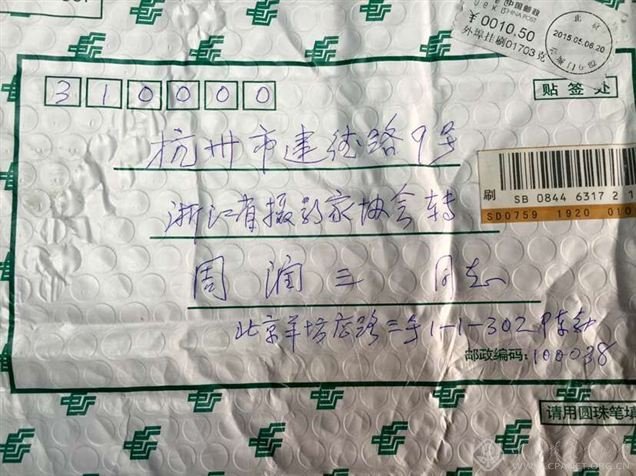 中国邮政
CHINA POST
¥0010.50
外埠挂刷01703克
北京
2015.05.06.20
贴签处
310000
杭州市建德路9号
刷
SB 0844 6317 2 1
SD0759 1920 010
浙江省摄影家协会转
周润三 同志
北京羊坊店路二号1-1-302
邮政编码：100038
请用圆珠笔填
WWW.CPANET.ORG.CN